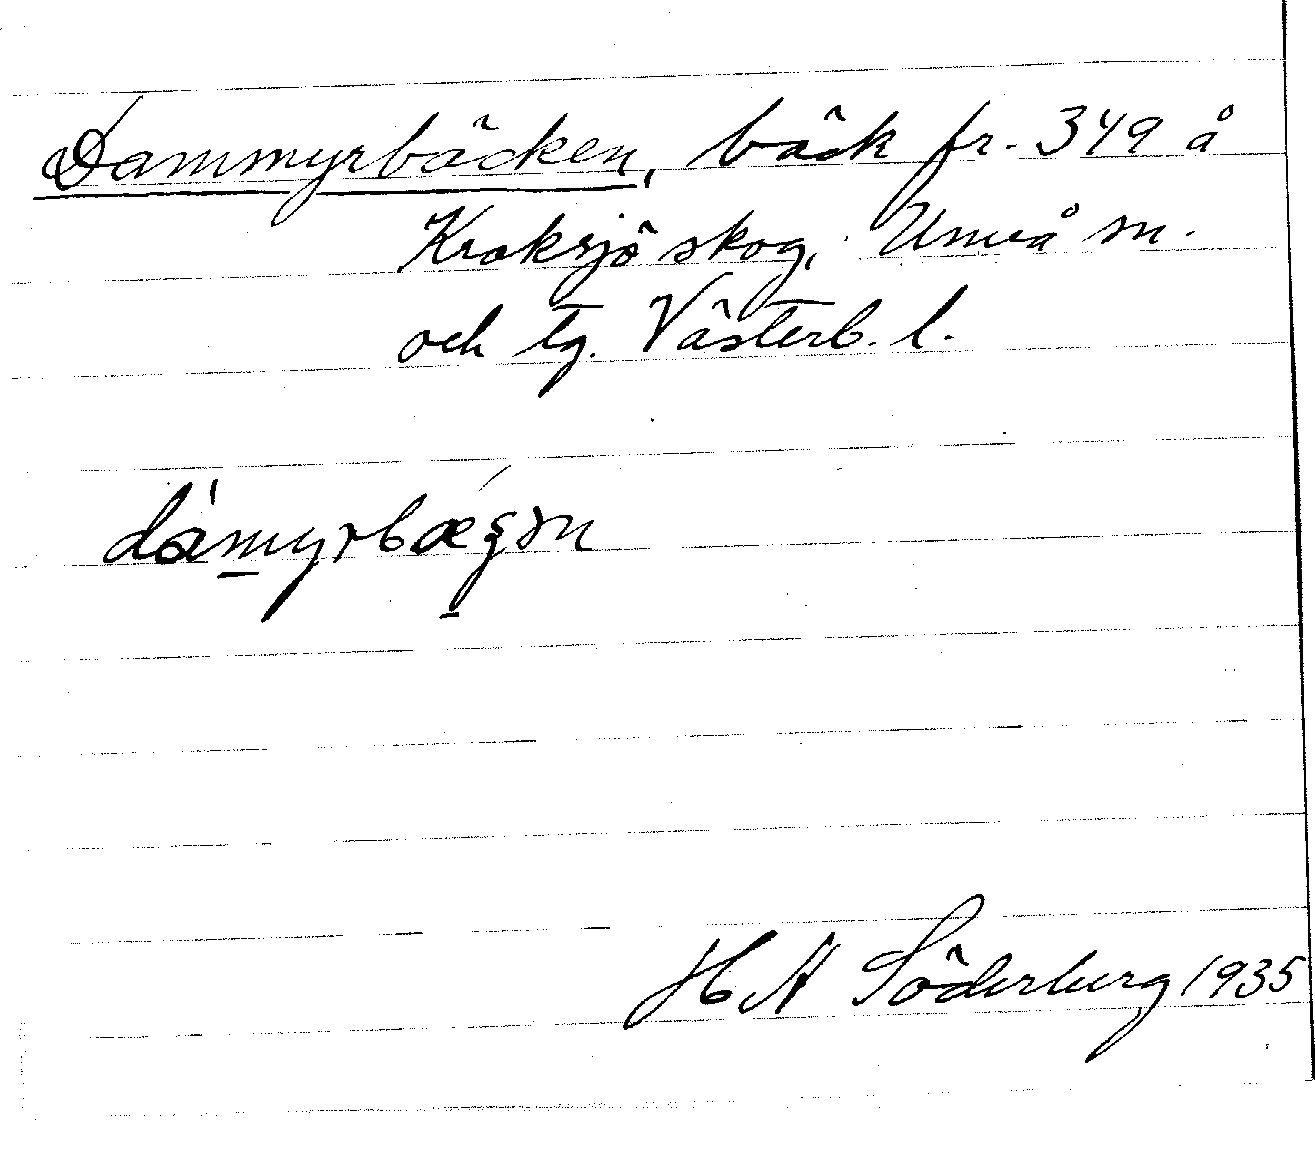 Dammyrbäcken, bäck fr. 349 å
Kroksjö skog, Umeå sn.
och tg. Västerb. l.
dámyrbægən
H A Söderberg 1935